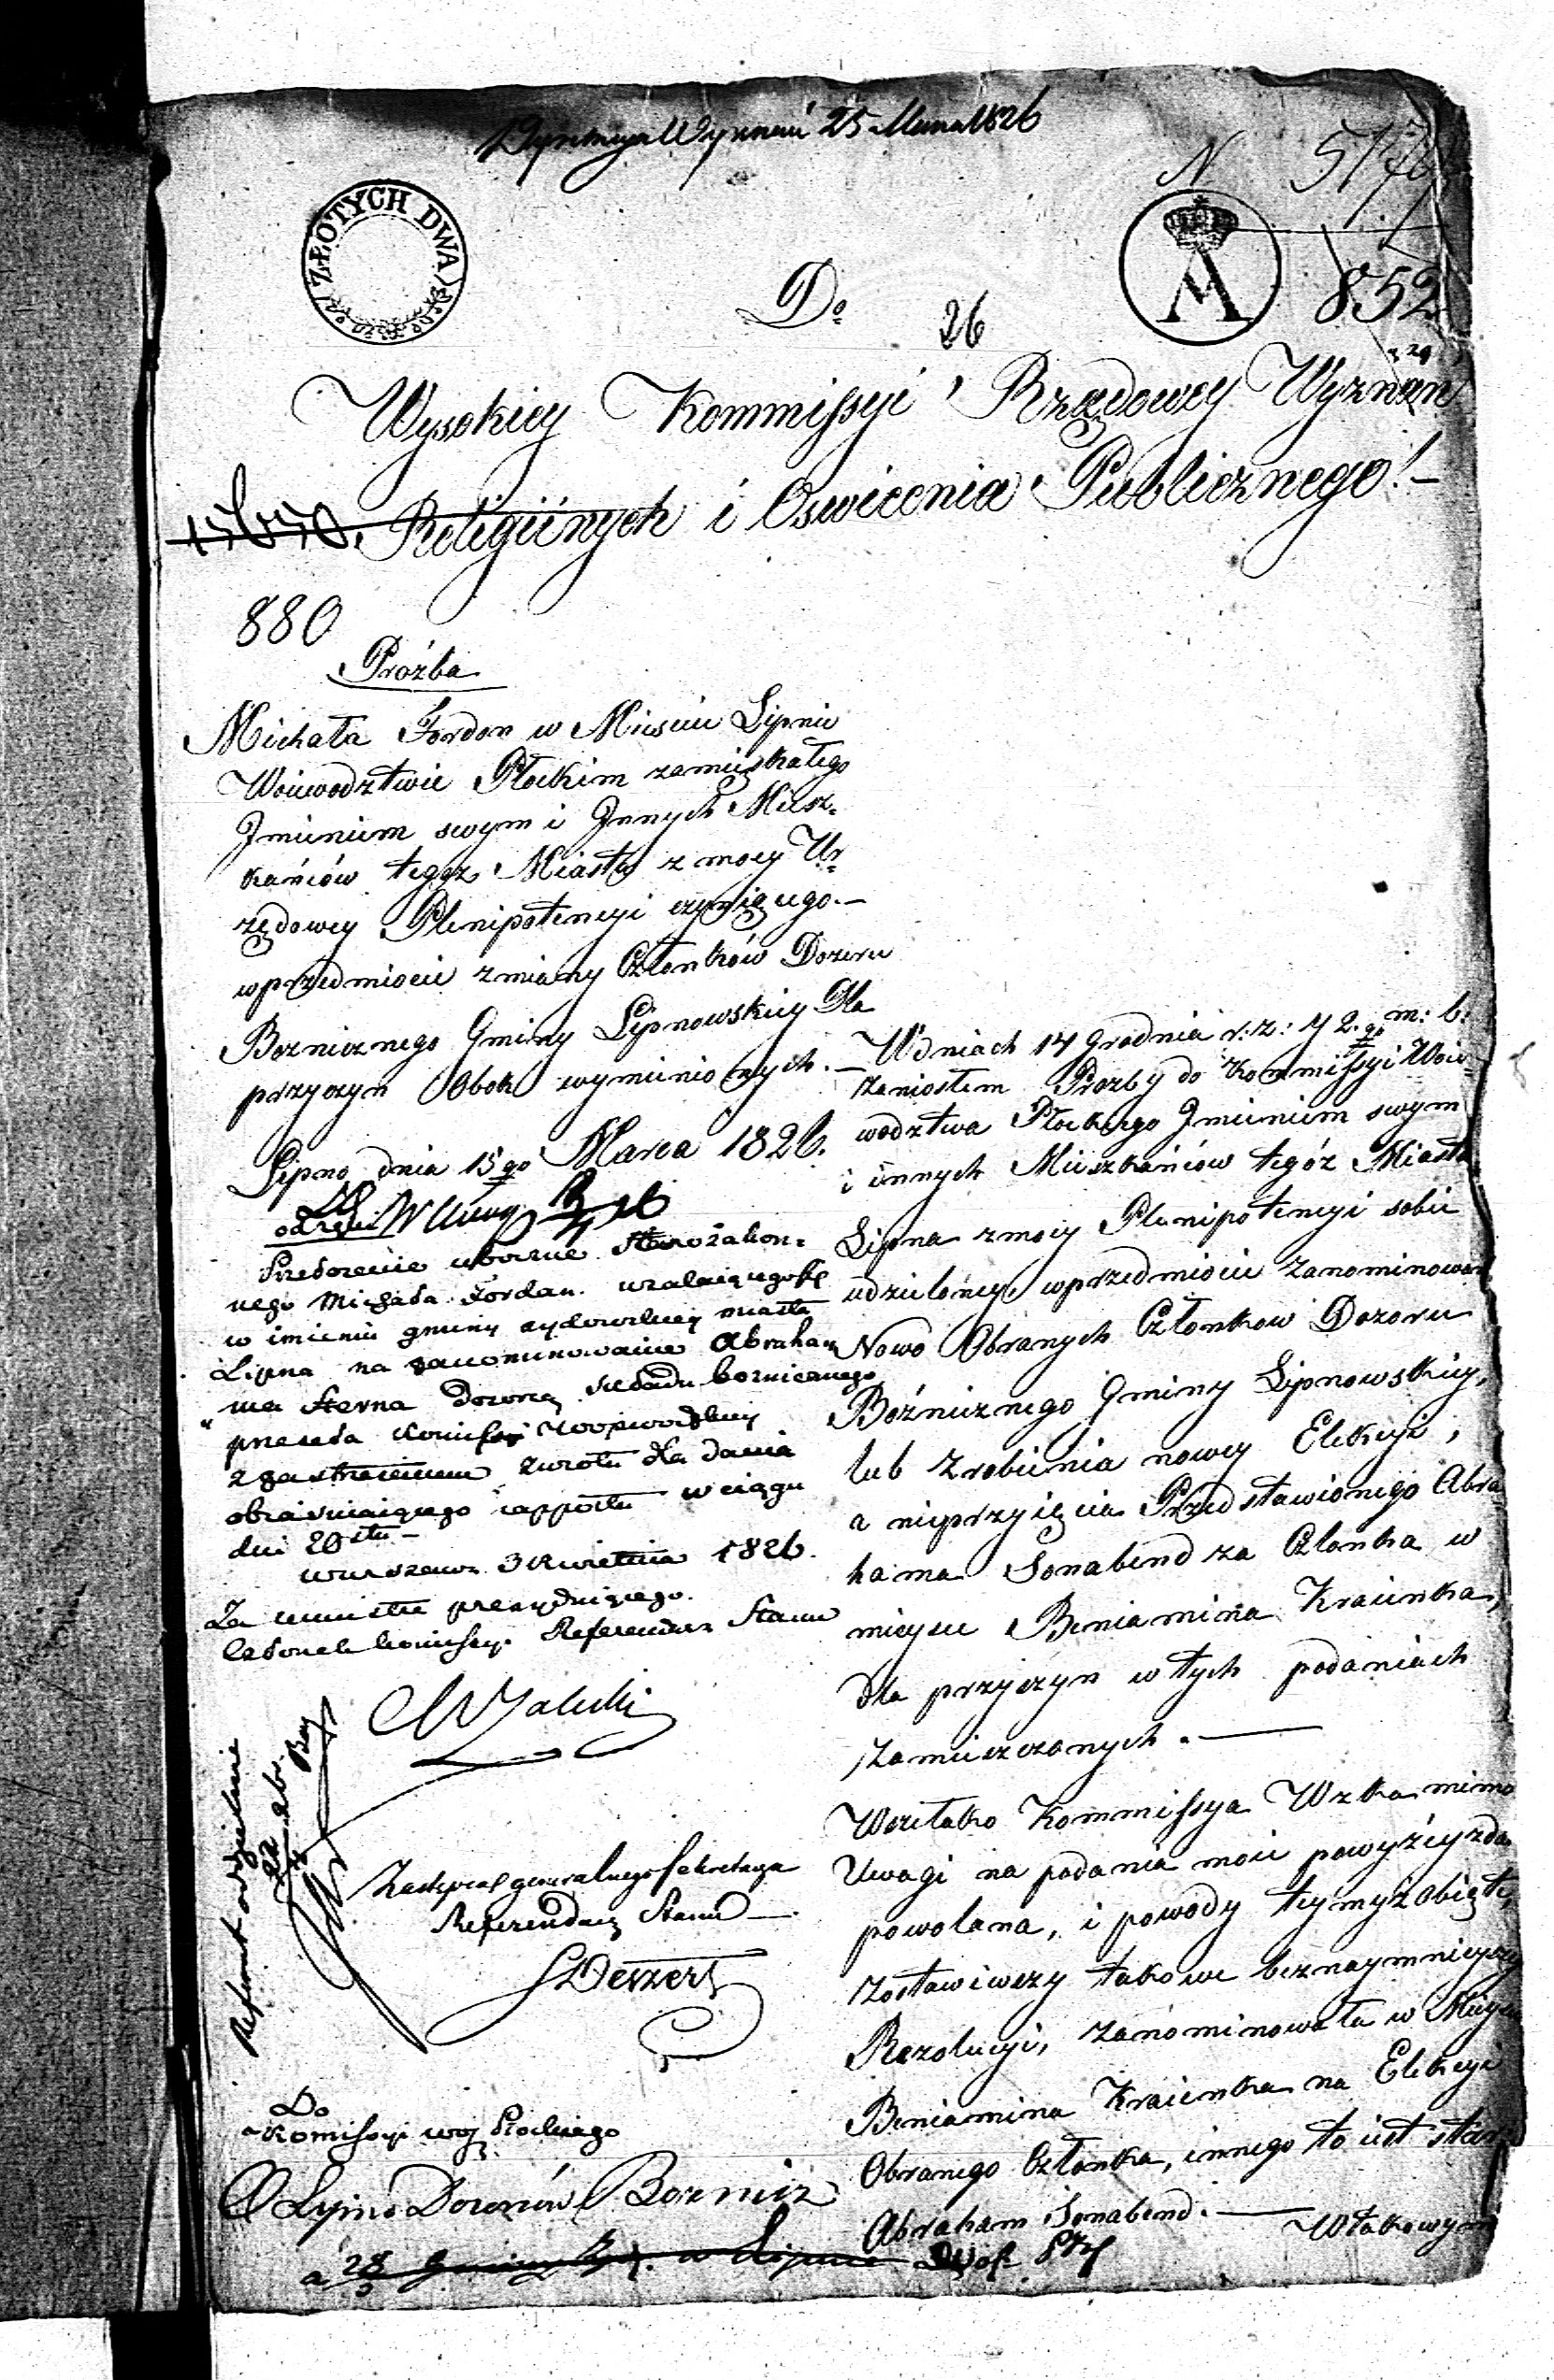 Wyznań 25 Marca 1826
N 517
ZŁOTYCH DWA
852
Do
26
Wysokiey Kommissyi Rządowey Wyznań
Religiinych i Oswiecenia Publicznego!
880
Prożba
Michała Fordon w Miescie Lipnie
Woiewodztwie Płockim zamieszkałego
Imieniem swym i Innych Miesz-
kańców tegoz Miasta z mocy U-
rzędowey Plenipotencyi czyniącego.—
wprzedmiocie zmiany Członków Dozoru
Boznicznego Gminy Lipnowskiey Dla
przyczyn Obok wymienionych.—
Lipno dnia 15go Marca 1826.
Przełożenie uboczne Starozakon-
nego Michała Fordan. uzalaiącego się
w imieniu gminy zydowskiey miasta
Lipna na zanominowanie Abraha-
ma Sterna Dozorcą składu boznicznego
przesela Komissyi Woiewodzkiey
z zastrzezeniem zwrotu dla dania
obiasniaiącego rapportu w ciągu
dni 20stu—
Warszawa 3 Kwietnia 1826.
Za ministra prezyduiącego.
Członek komissyi Referendarz Stanu
Zastępca generalnego Sekretarza
Referendarz Stanu—.
Referent oddzielnie
Do
Komissyi woj Płockiego
Lipno Dozorów Boznic
a 28 w Lipnie
W dniach 14 Grudnia r. z: y 2.go m: b:
zaniosłem Prozby do Kommissyi Woie-
wodztwa Płockiego Imieniem swym
i innych Mieszkańców tegóz Miasta
Lipna z mocy Plenipotencyi sobie
udzieloney, wprzedmiocie zanominowan
Nowo Obranych Członkow Dozoru
Bóżnicznego Gminy Lipnowskiey,
lub zrobienia nowey Elekcyi,
a nieprzyięcia Przedstawionego Abra-
hama Sonabend za Członka w
mieysce Beniamina Kraienka,
dla przyczyn w tych podaniach
zamieszczonych.—
Wszelako Kommissya Wzka mimo
Uwagi na podania moie powyżey zda
powolana, i powody teymyż obięte,
zostawiwszy takowe beznaymnieyszey
Rezolucyi, zanominowała w Mieysce
Beniamina Kraienka na Elekcyi
Obranego Członka, innego to iest star
Abraham Sonabend.—
W takowym